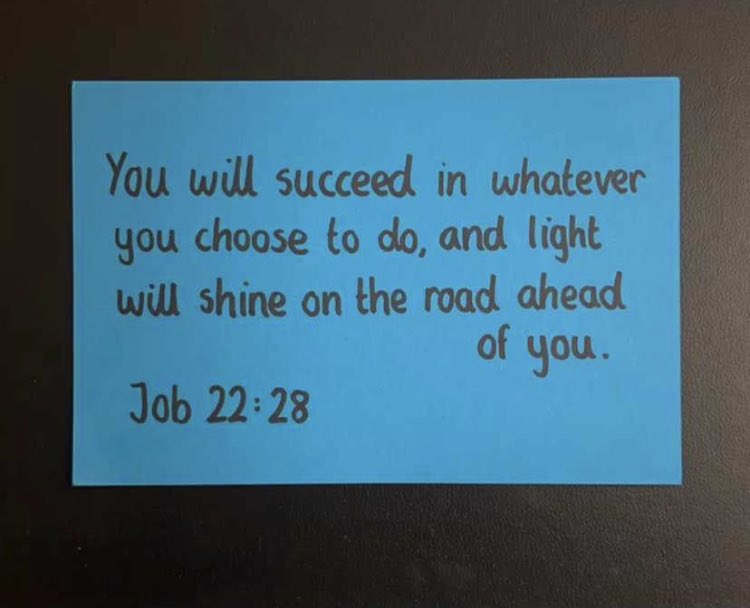 You will succeed in whatever
you choose to do, and light
will shine on the road ahead
of you.
Job 22:28